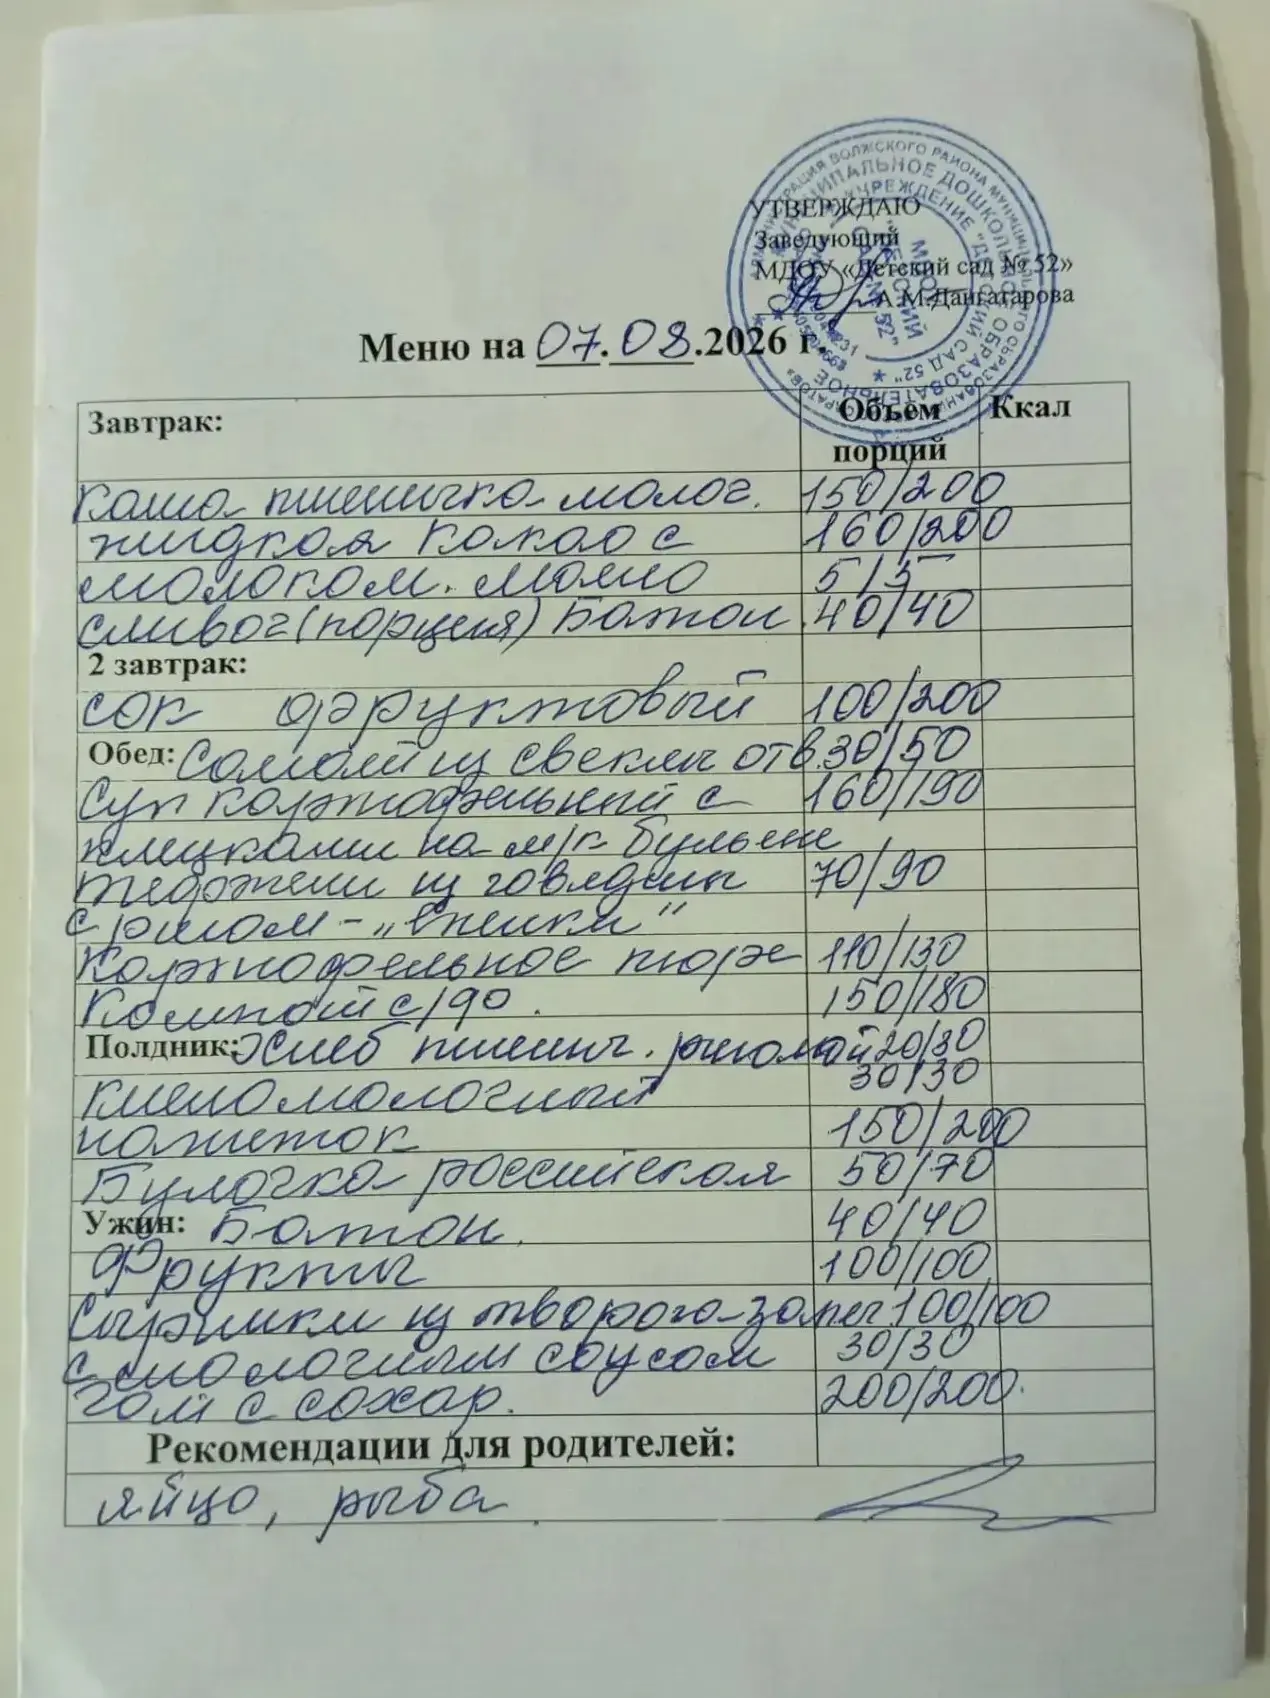 УТВЕРЖДАЮ
Заведующий
МДОУ «Детский сад № 52»
А.М.Дангатарова
Меню на 07.08.2026 г.
Завтрак: Объем порций Ккал
Каша пшеничная молоч. 150/200
жидкая Какао с 160/200
молоком. масло 5/5
сливоч (порция) Батон. 40/40
2 завтрак:
сок фруктовый 100/200
Обед: Салат из свеклы отв. 30/50
Суп картофельный с 160/190
клецками на м/к бульоне
Тефтели из говядины 70/90
с рисом - „Ежики"
Картофельное пюре 110/130
Компот с/ф . 150/180
Полдник: Хлеб пшенич. ржаной 20/30
30/30
кисломолочный
напиток 150/200
Булочка российская 50/70
Ужин: Батон. 40/40
Фрукты 100/100
Сырники из творога-запеч 100/100
с молочным соусом 30/30
Чай с сахар. 200/200.
Рекомендации для родителей:
яйцо, рыба